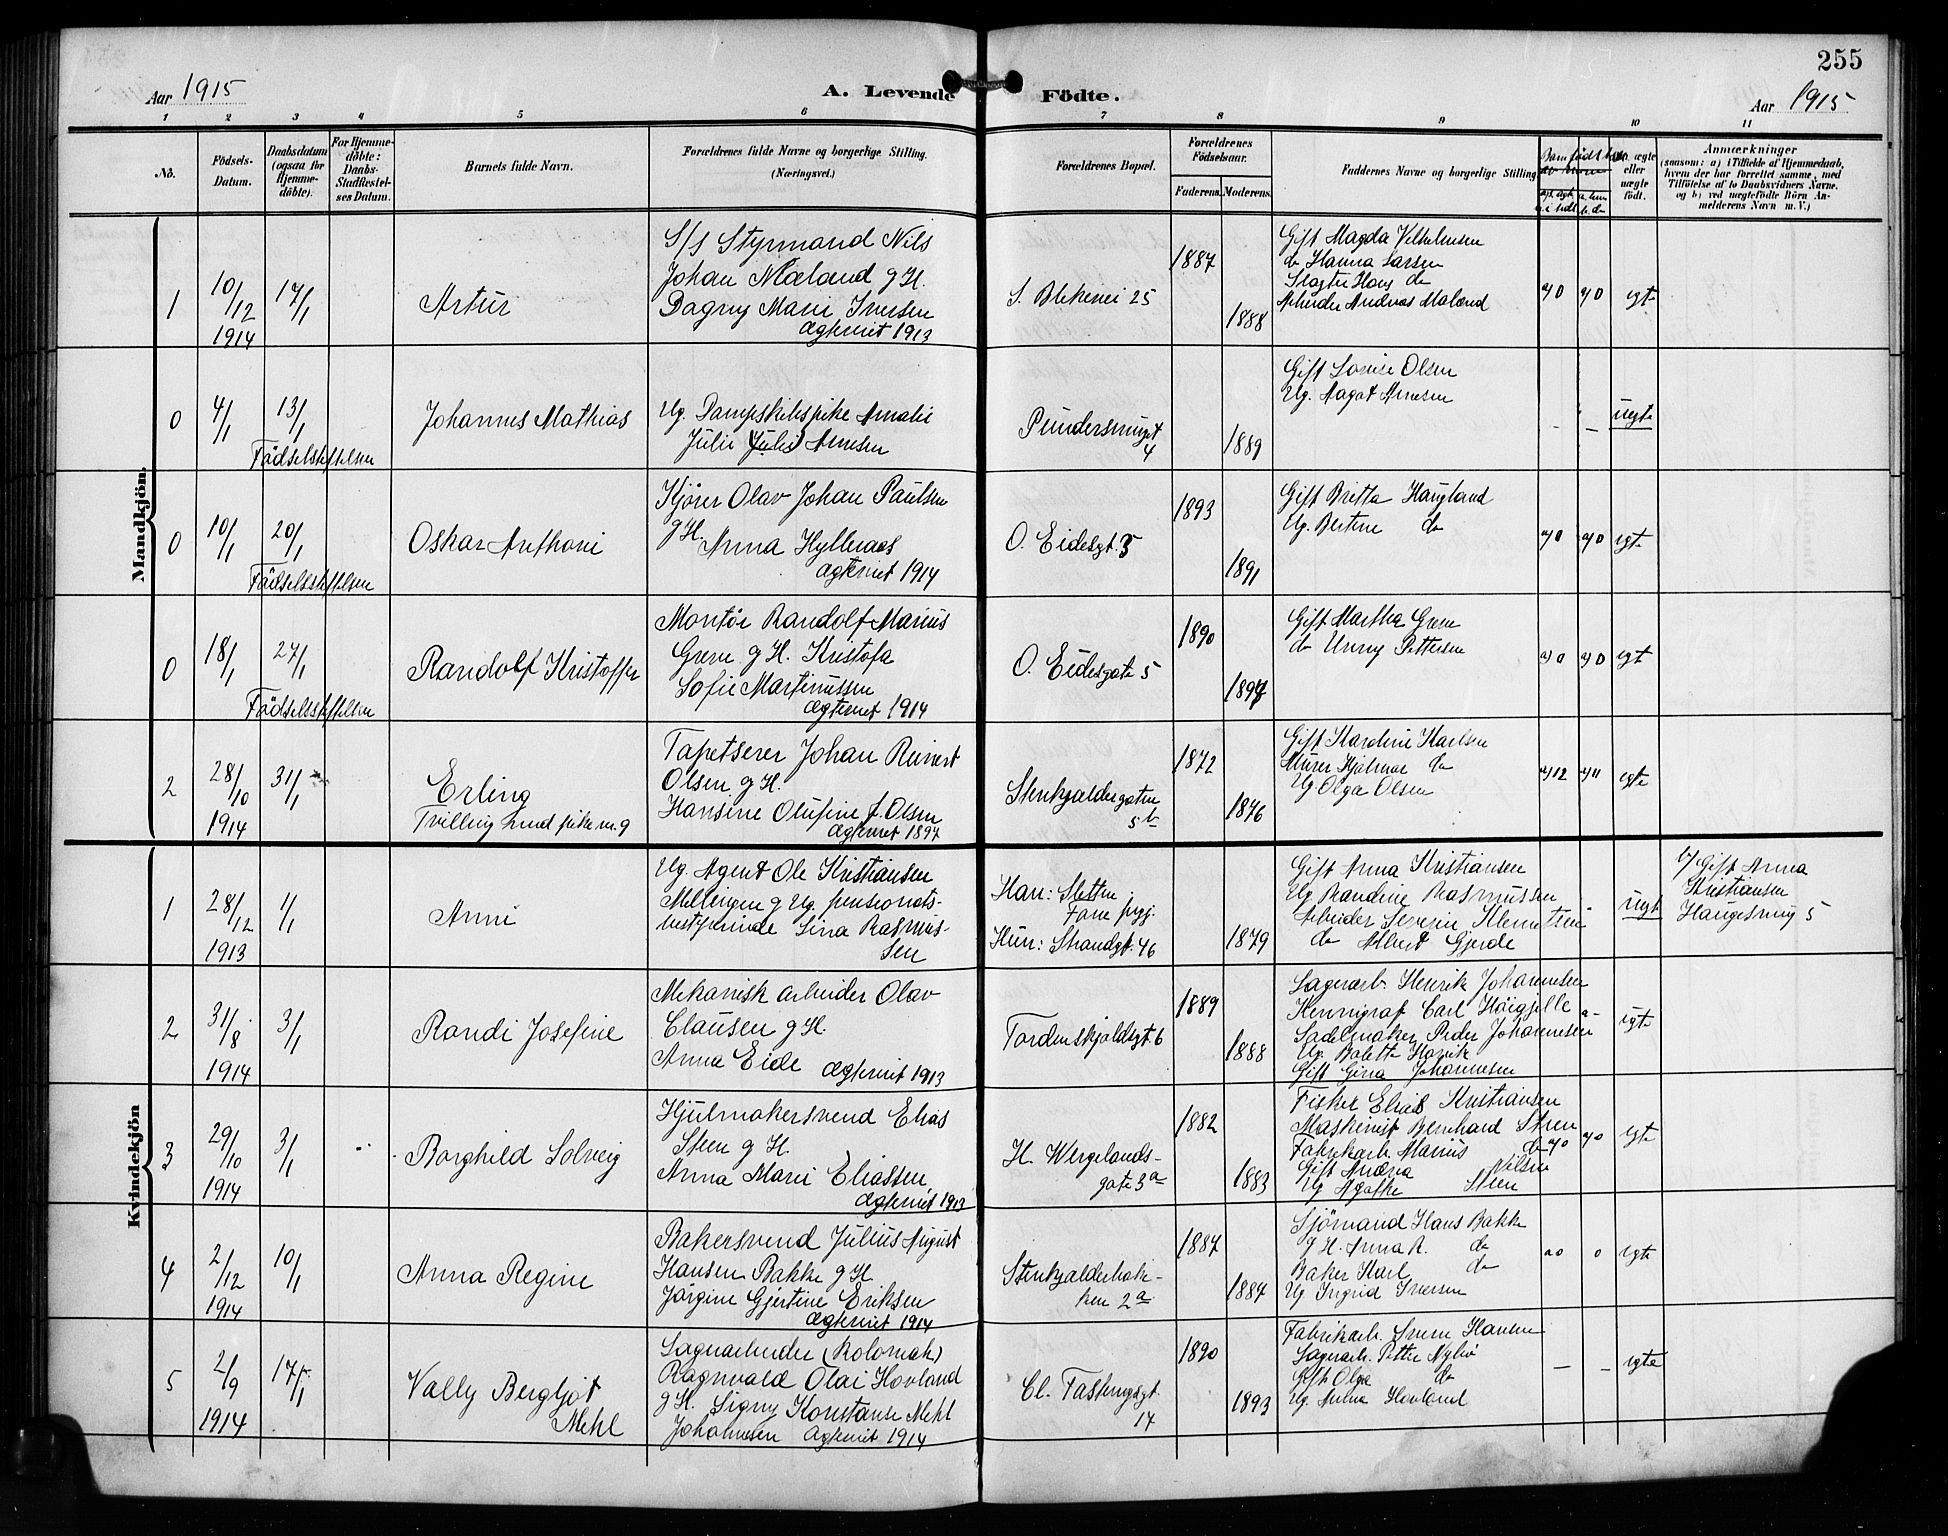 255
Aar 1915
A. Levende Födte.
Aar 1915
1 2 3 4 5 6 7 8 9 10 11
No.
Födsels-
Datum.
Daabsdatum
(ogsaa for
Hjemme-
döbte).
For Hjemme-
döbte:
Daabs-
Stadfæstel-
ses Datum.
Barnets fulde Navn.
Forældrenes fulde Navne og borgerlige Stilling.
(Næringsvei.)
Forældrenes Bopæl.
Forældrenes
Födselsaar.
Faderens.
Moderens.
Faddernes Navne og borgerlige Stilling
ægte
eller
uægte
födt.
Anmærkninger
(saasom: a) i Tilfælde af Hjemmedaab,
hvem der har forrettet samme, med
Tilföielse af to Daabsvidners Navne.
og b) ved uægtefödte Börn An-
melderens Navn m. V.)
Mandkjön.
1
10/12
1914
17/1
Artur
S/s Styrmand Nils
Johan Mæland g H.
Dagny Marie Iversen
ægteviet 1913
S. Blekevei 25
1887
1888
Gift Magda Vilhelmsen
do Hanna Larsen
Slagter Hans do
Arbeider Andreas Mæland
egte
0
4/1
13/1
Födselsstiftelsen
Johannes Mathias
Ug. Dampskibspike Amalie
Julie Julie Arnesen
Pundersmuget
4
1889
Gift Lovise Olsen
Ug. Aagot Arnesen
- -
uegte
0
10/1
20/1
Födselsstiftelsen
Oskar Anthoni
Kjører Olav Johan Paulsen
g H. Anna Hyllnaes
ægteviet 1914
O. Eidesgt. 3
1893
1891
Gift Britta Haugland
Ug. Bertine do
egte
0
18/1
27/1
Födselsstiftelsen
Randolf Kristoffer
Montör Randolf Marius
Greve g H. Kristofa
Sofie Martinussen
ægteviet 1914
O. Eidesgate 5
1890
Gift Martha Greve
do Unny Pettersen
egte
2
28/10
1914
31/1
Erling
Tvilling med pike nr. 9
Tapetserer Johan Reinert
Olsen g H.
Hansine Olufine f. Olsen
ægteviet 1897
Stenkjaldergaten
5b
1872
1876
Gift Kardine Karlsen
Murer Hjalmar do
Ug Olga Olsen
egte
Kvindekjön
1
28/12
1913
1/1
Anni
Ug. Agent Ole Kristiansen
Mellingen g Ug. pensionats-
bestyrerinde Sina Rasmus-
sen
Han: Sletten
Fane prgj.
Hun: Strandgt. 46
1879
Gift Anna Kristiansen
Ug Randine Rasmussen
Arbeider Severin Klemetsen
do Albert Gjerde
-
uegt
b/ Gift Anna
Kristiansen
Haugesmug 5
2
31/8
1914
3/1
Randi Josefine
Mekanisk arbeider Olav
Clausen g H.
Anna Eide ægteviet 1913
Tordenskjoldsgt. 6
1889
1888
Lagerarb. Henrik Johannesen
Carl Höigjelle
Sadelmaker Peder Johannesen
Ug. Bolette Henrik
Gift Gina Johannesen
egte
3
29/10
1914
3/1
Borghild Solveig
Hjulmakersvend Elias
Steen g H.
Anna Marie Eliassen
ægteviet 1913
H. Wergelands-
gate 3a
1882
1883
Fisker Elias Kristiansen
Maskinist Bernhard Steen
Fabrikarb. Marius do
Gift Andrea Nilsen
Ug Agathe Steen
egte
4
2/12
1914
10/1
Anna Regine
Bakersvend Julius August
Hansen Bakke g H.
Jörgine Gjertine Eriksen
ægteviet 1914
Stenkjalderbak-
ken 2a
1887
1884
Sjömand Hans Bakke
g H. Anna R. do
Baker Karl do
Ug Ingrid Iversen
egte
5
2/9
1914
17/1
Vally Bergljot
Mehl
Lagerarbeider (Kolomak)
Ragnvald Olai Hovland
g H. Signy Konstanse Mehl
Johannesen ægteviet 1914
Cl. Fastingsgt.
17
1890
1893
Fabrikarb. Sverre Hansen
Lagerarb. Petter Nybö
Gift Olga do
Ug. Anna Hovland
- -
egte